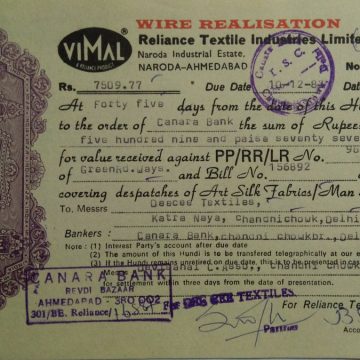 WIRE REALISATION
VIMAL
A RELIANCE PRODUCT
Reliance Textile Industries Limite
Naroda Industrial Estate,
NARODA-AHMEDABAD
Rs. 7509.77 Due Date 10-12-83
At Forty five days from the date of this H
to the order of Canara Bank the sum of Rupee
five hundred nine and paisa seventy seve
for value received against PP/RR/LR No. 96
of and Bill No. 156892
covering despatches of Art Silk Fabrics/Man
To Messrs Deecee Textiles,
Katra Naya, Chandnichowk, Delhi
Bankers : Canara Bank, Chandni Chowk, Delhi
Note : (1) Interest Party's account after due date
(2) The amount of this Hundi is to be transferred telegraphically at our
(3) If the Hundi remains unretired on due date, this is to be presented in cas
Messrs
for settlement within three days from the date of present
CANARA BANK
REVDI BAZAAR
AHMEDABAD - 380 002
301/BE. Reliance/
For DEE CEE TEXTILES
For Reliance Te
Partner